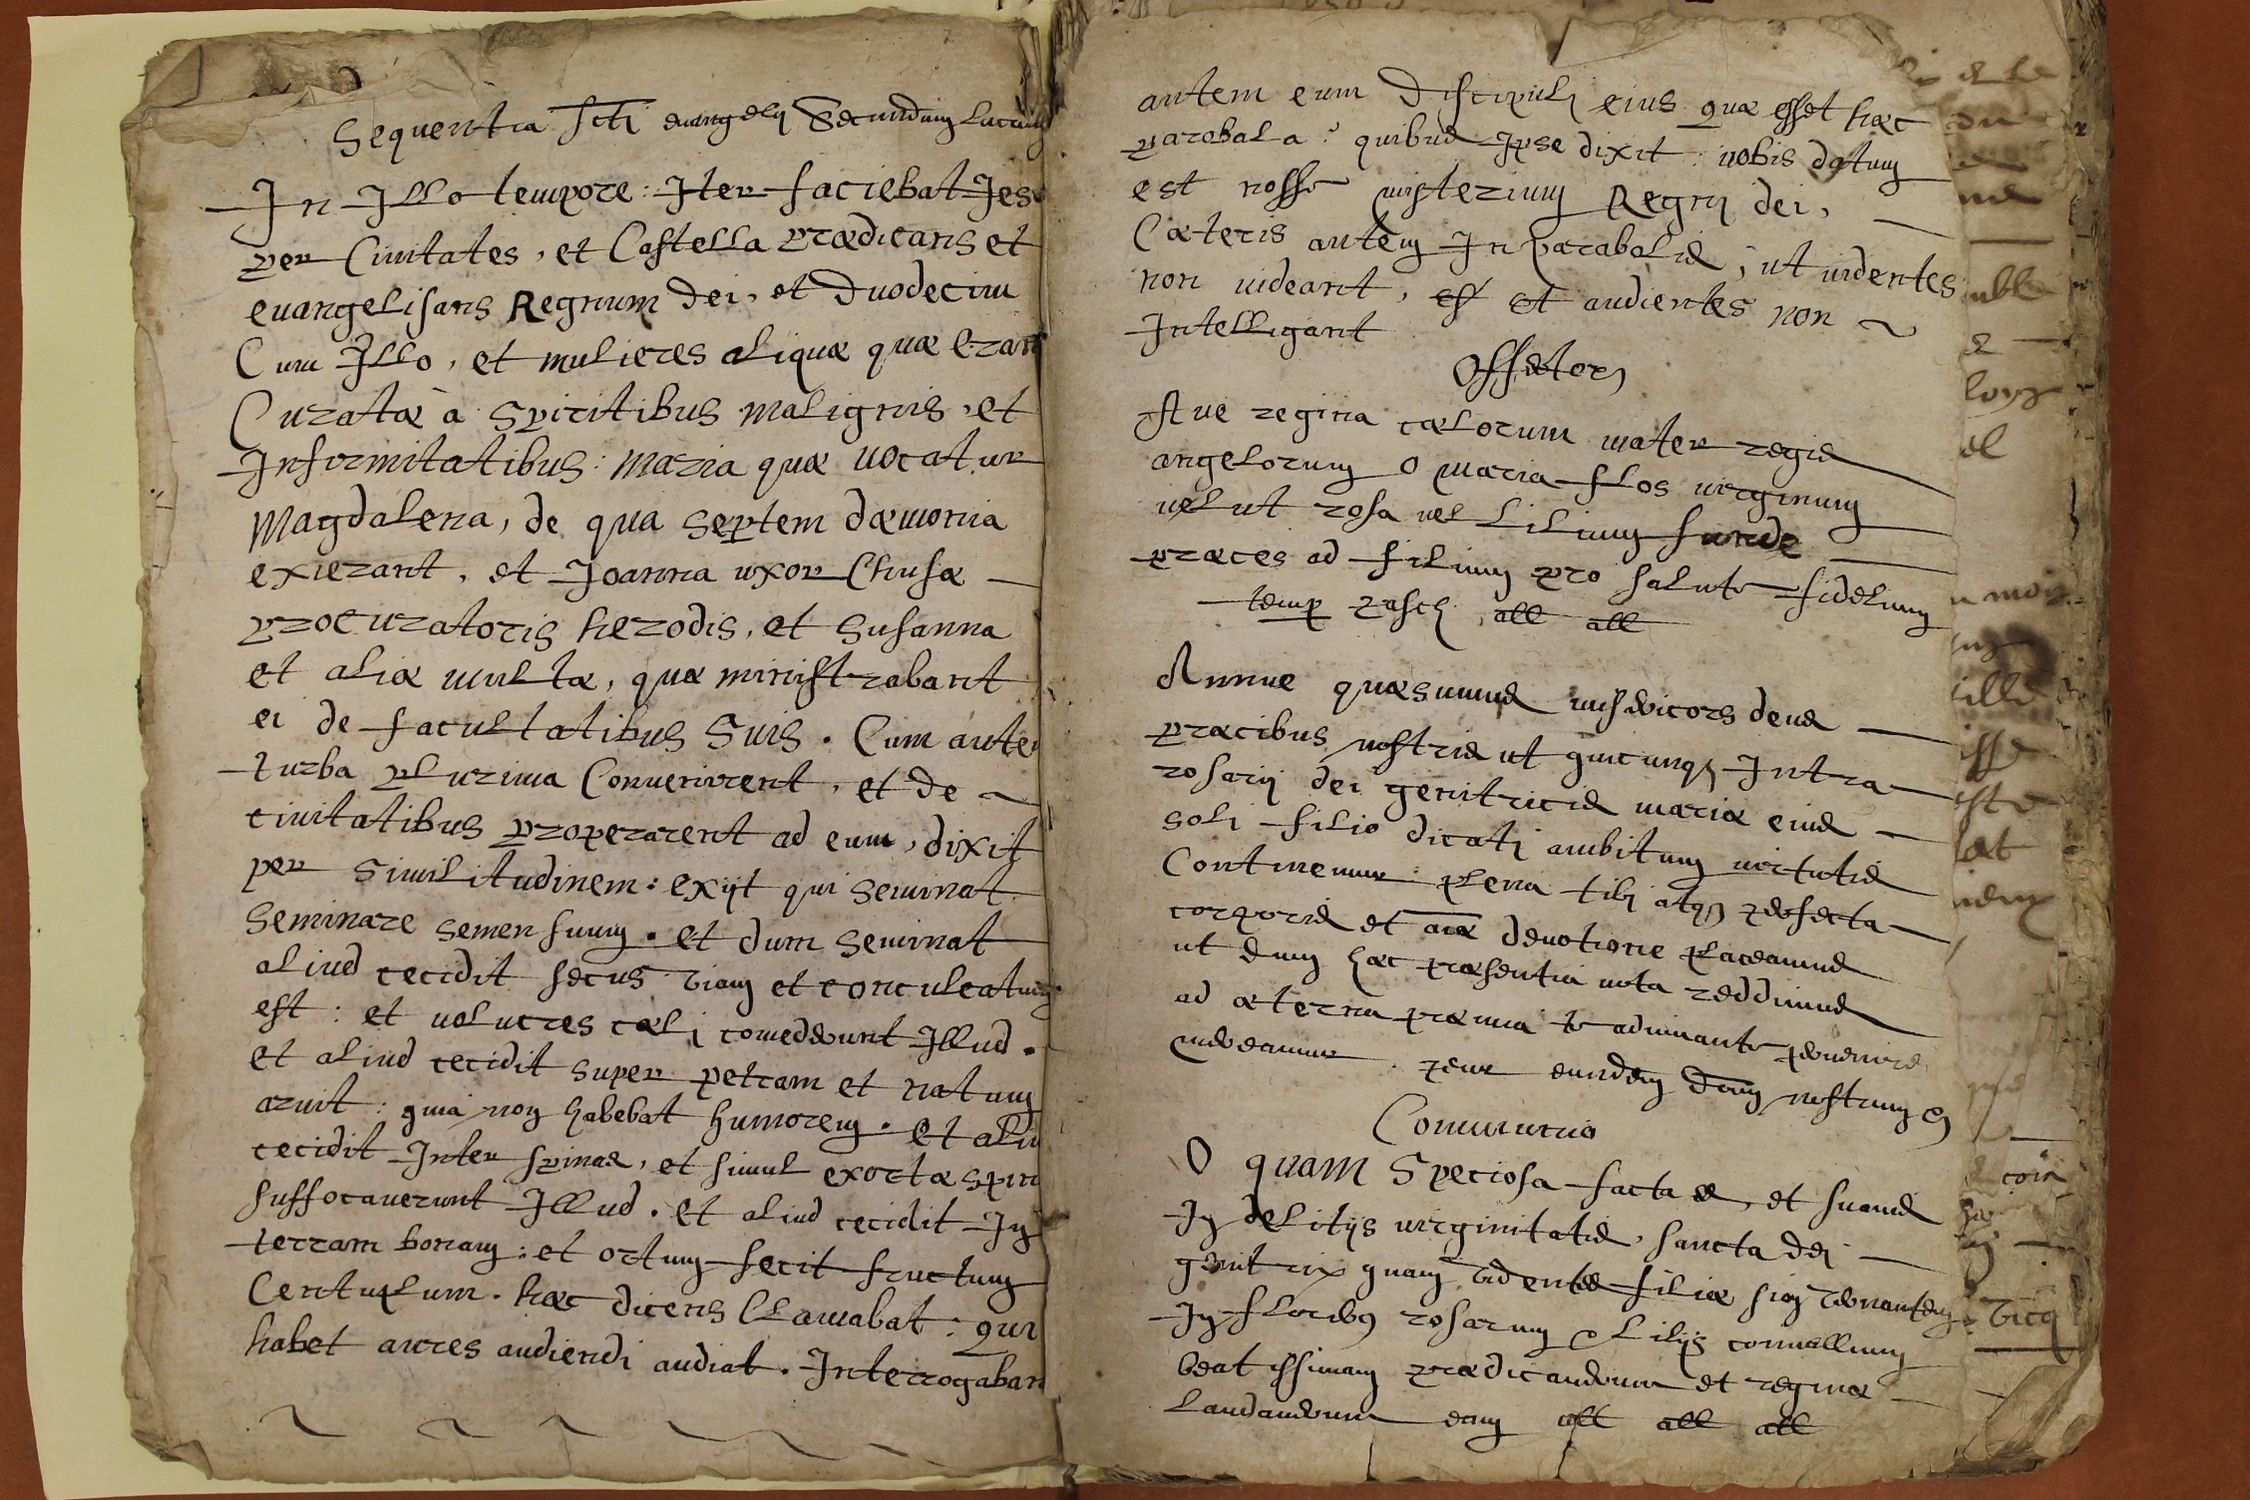 Sequentia scti evangelij Secundum Lucam
In Illo tempore: Iter faciebat Jes
per Civitates, et Castella prædicans et
evangelisans Regnum dei, et Duodecim
Cum Illo, et mulieres aliquæ quæ erant
Curatæ à Spiritibus malignis, et
Infirmitatibus: Maria quæ vocatur
Magdalena, de qua septem dæmonia
exierant, et Joanna uxor Chusæ
procuratoris herodis, et Susanna
et aliæ multæ, quæ ministrabant
ei de facultatibus Suis. Cum autem
turba plurima Convenirent, et de
civitatibus properarent ad eum, dixit
per Similitudinem: exijt qui seminat
Seminare semen suum. et dum seminat
aliud cecidit secus viam et conculcatum
est: et volucres cæli comederunt Illud.
et aliud cecidit super petram et natum
aruit: quia non habebat humorem. et aliu
cecidit Inter spinas, et simul exortæ spin
suffocaverunt Illud. et aliud cecidit In
terram bonam: et ortum fecit fructum
Centuplum. hæc dicens Clamabat: qui
habet aures audiendi audiat. Interrogaban
autem eum Discipuli eius quæ esset hæc
parabala? quibus Ipse dixit: vobis datum
est nosse misterium Regni dei,
Cæteris autem In parabolis, ut videntes
non videant, et audientes non
Intelligant
Offertory
Ave regina cælorum mater regis
angelorum o maria flos virginum
velut rosa vel lilium funde
præces ad filium pro salute fidelium
temp pasch, all all
Annue quæsumus misericors deus
præcibus nostris ut quicunq Intra
rosarij dei genitricis mariæ eius
soli filio dicati ambitum virtutis
Continemur: plena tibi atq perfecta
corporis et aiæ devotione placeamus
ut dum hæc præsentia vota reddimus
ad æterna præmia te adiuvante pervenire
mereamur. per eundem dnum nostrum &
Communio
O quam Speciosa facta es, et suavis
In delitijs virginitatis, sancta dei
genitrix quam videntes filiæ sion vernantem
In floribus rosarum & lilijs convallium
beatissimam prædicaverunt et reginæ
laudaverunt eam all all all